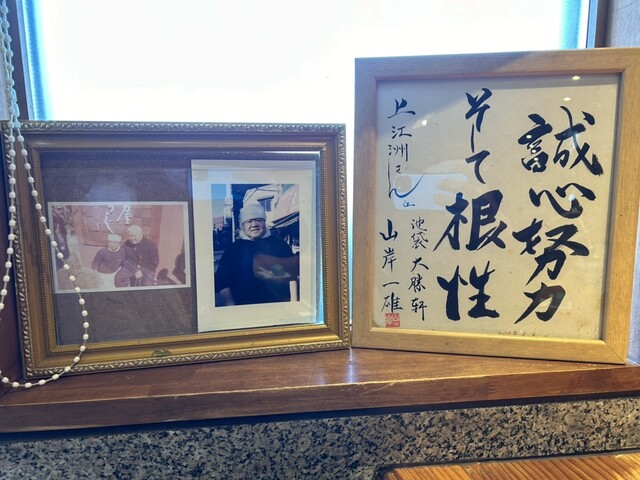 誠心努力
そして
根性
上江洲さん江
池袋大勝軒
山岸一雄